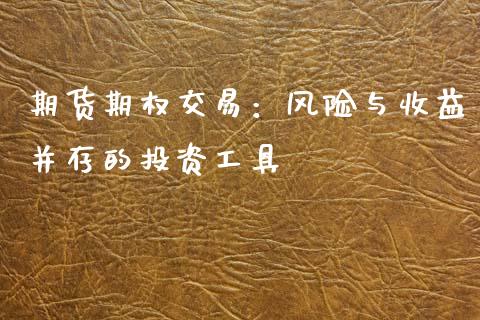 期货期权交易：风险与收益
并存的投资工具